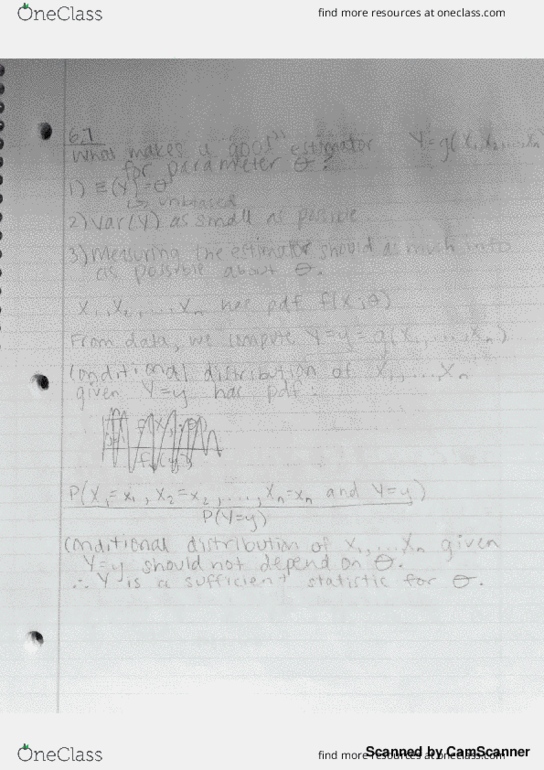 OneClass
find more resources at oneclass.com
6.7
What makes a "good" estimator Y=g(X₁,X₂,...,Xₙ)
for parameter θ?
1) E(Y)=θ
↳ unbiased
2) Var(Y) as small as possible
3) Measuring the estimator should as much info
as possible about θ.
X₁,X₂,...,Xₙ has pdf f(x,θ)
From data, we compute Y=y=g(x₁,...,xₙ)
Conditional distribution of X₁,...Xₙ
given Y=y has pdf:
P(X₁=x₁, X₂=x₂,...,Xₙ=xₙ and Y=y)
P(Y=y)
Conditional distribution of X₁,...Xₙ given
Y=y should not depend on θ.
∴ Y is a sufficient statistic for θ.
OneClass
find more resources at oneclass.com
Scanned by CamScanner